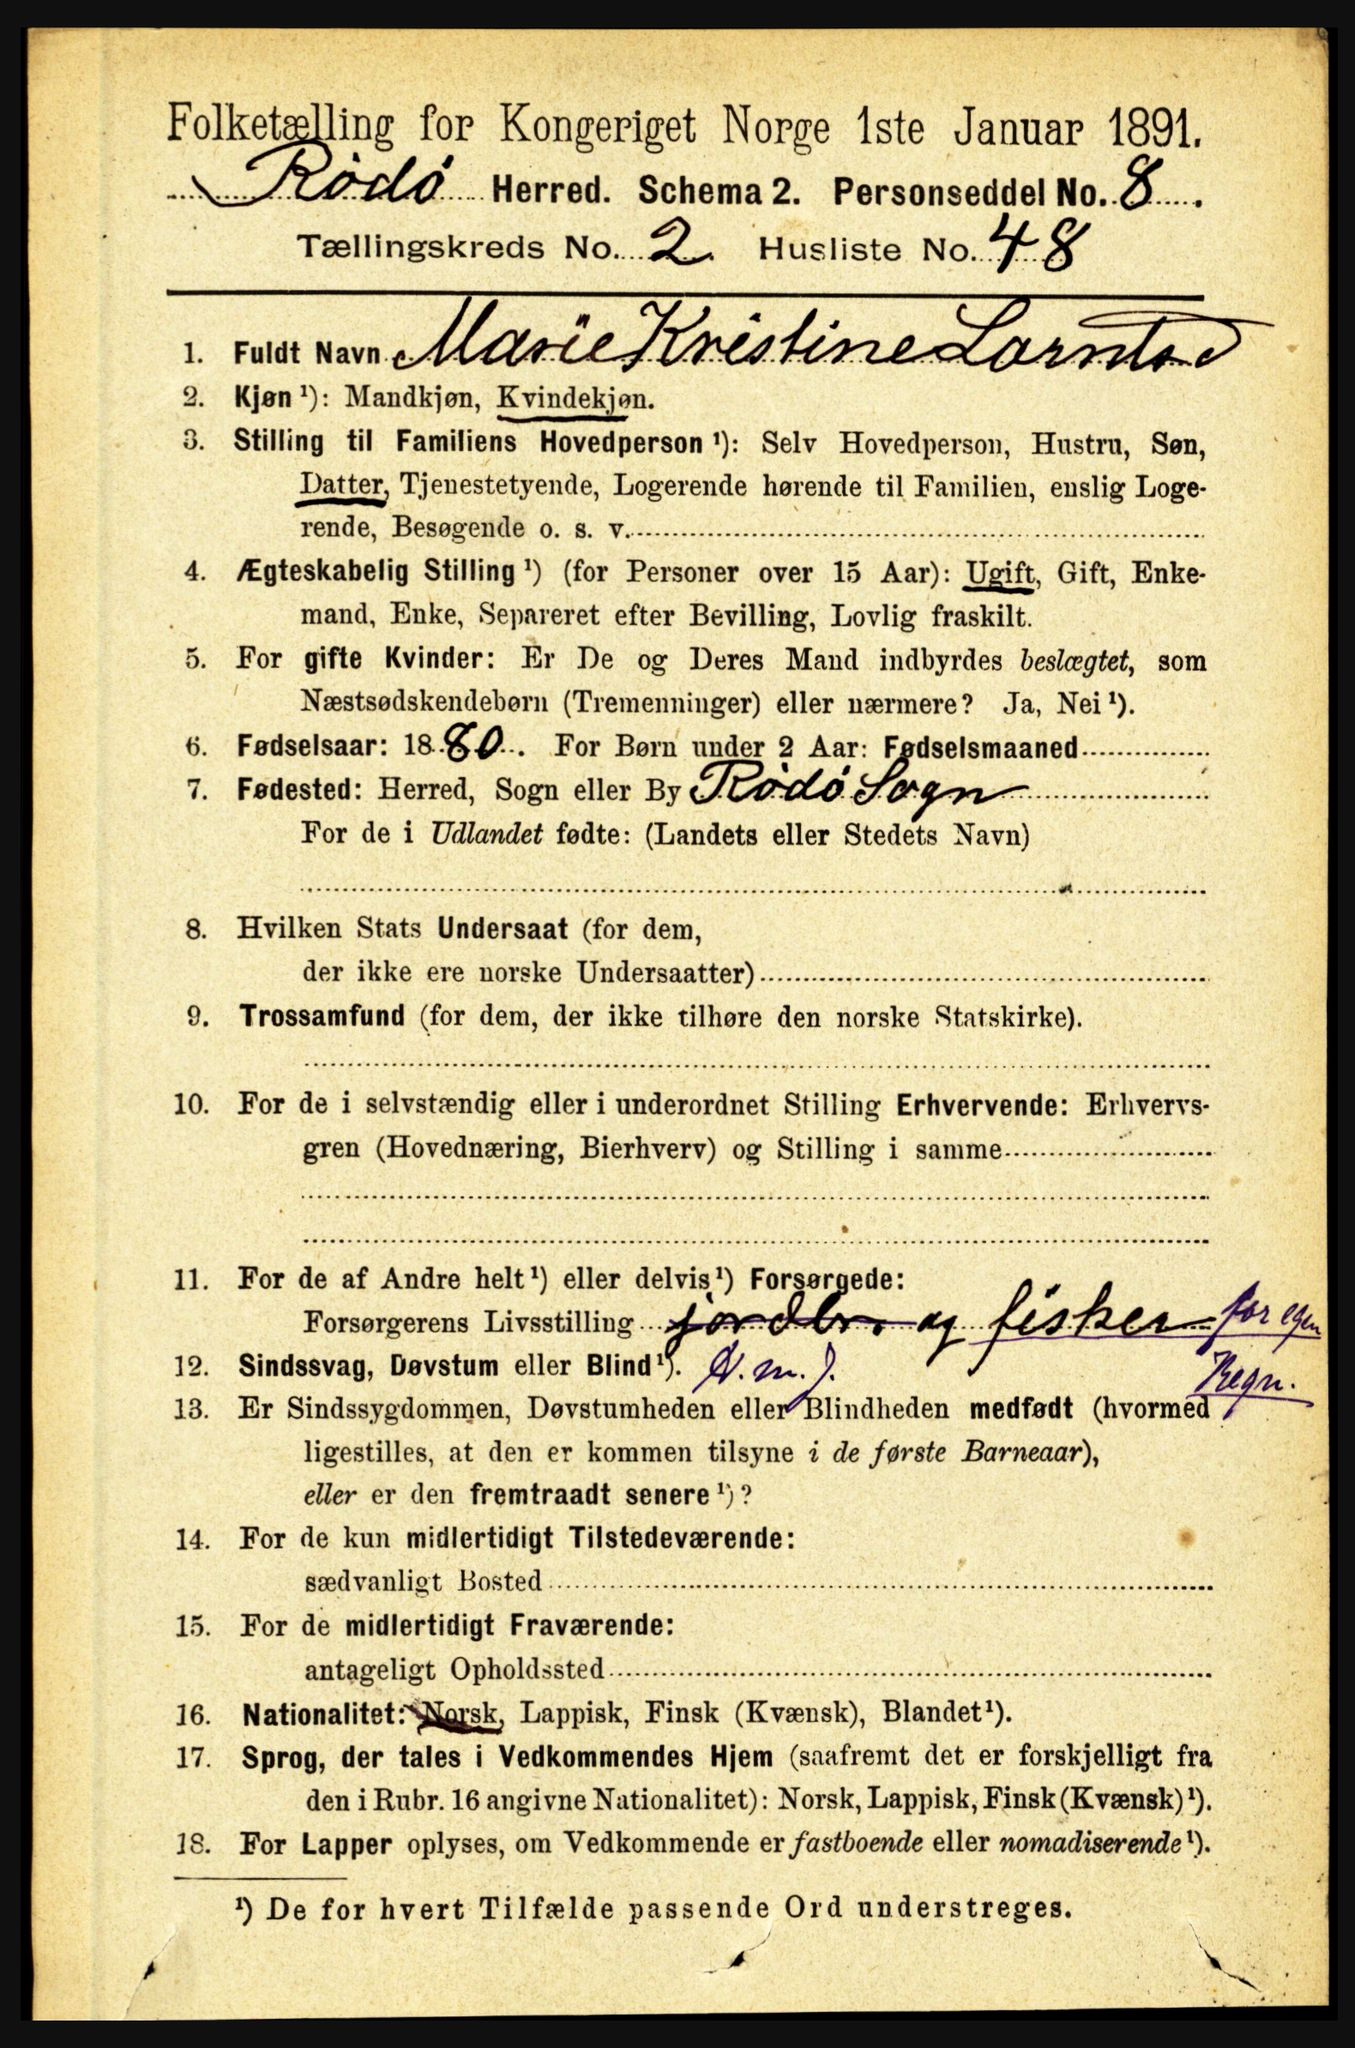 Folketælling for Kongeriget Norge 1ste Januar 1891.
Rødø Herred. Schema 2. Personseddel No. 8.
Tællingskreds No. 2. Husliste No. 48
1. Fuldt Navn Marie Kristine Larntsd
2. Kjøn ¹): Mandkjøn, Kvindekjøn.
3. Stilling til Familiens Hovedperson ¹): Selv Hovedperson, Hustru, Søn,
Datter, Tjenestetyende, Logerende hørende til Familien, enslig Loge-
rende, Besøgende o. s. v.
4. Ægteskabelig Stilling ¹) (for Personer over 15 Aar): Ugift, Gift, Enke-
mand, Enke, Separeret efter Bevilling, Lovlig fraskilt.
5. For gifte Kvinder: Er De og Deres Mand indbyrdes beslægtet, som
Næstsødskendebørn (Tremenninger) eller nærmere? Ja, Nei ¹).
6. Fødselsaar: 1880. For Børn under 2 Aar: Fødselsmaaned
7. Fødested: Herred, Sogn eller By Rødø Sogn
For de i Udlandet fødte: (Landets eller Stedets Navn)
8. Hvilken Stats Undersaat (for dem,
der ikke ere norske Undersaatter)
9. Trossamfund (for dem, der ikke tilhøre den norske Statskirke).
10. For de i selvstændig eller i underordnet Stilling Erhvervende: Erhvervs-
gren (Hovednæring, Bierhverv) og Stilling i samme
11. For de af Andre helt ¹) eller delvis ¹) Forsørgede:
Forsørgerens Livsstilling jordbr. og fisker for egen
Regn.
12. Sindssvag, Døvstum eller Blind ¹).
13. Er Sindssygdommen, Døvstumheden eller Blindheden medfødt (hvormed
ligestilles, at den er kommen tilsyne i de første Barneaar),
eller er den fremtraadt senere ¹)?
14. For de kun midlertidigt Tilstedeværende:
sædvanligt Bosted
15. For de midlertidigt Fraværende:
antageligt Opholdssted
16. Nationalitet: Norsk, Lappisk, Finsk (Kvænsk), Blandet ¹).
17. Sprog, der tales i Vedkommendes Hjem (saafremt det er forskjelligt fra
den i Rubr. 16 angivne Nationalitet): Norsk, Lappisk, Finsk (Kvænsk) ¹).
18. For Lapper oplyses, om Vedkommende er fastboende eller nomadiserende ¹).
¹) De for hvert Tilfælde passende Ord understreges.